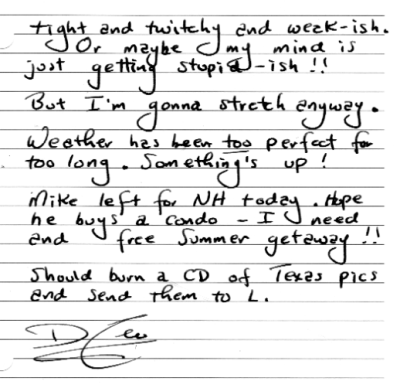 tight and twitchy and weak-ish.
Or maybe my mind is
just getting stupid-ish!!
But I'm gonna stretch anyway.
Weather has been too perfect for
too long. Something's up!
Mike left for NH today. Hope
he buys a condo - I need
and free summer getaway!!
Should burn a CD of Texas pics
and send them to L.